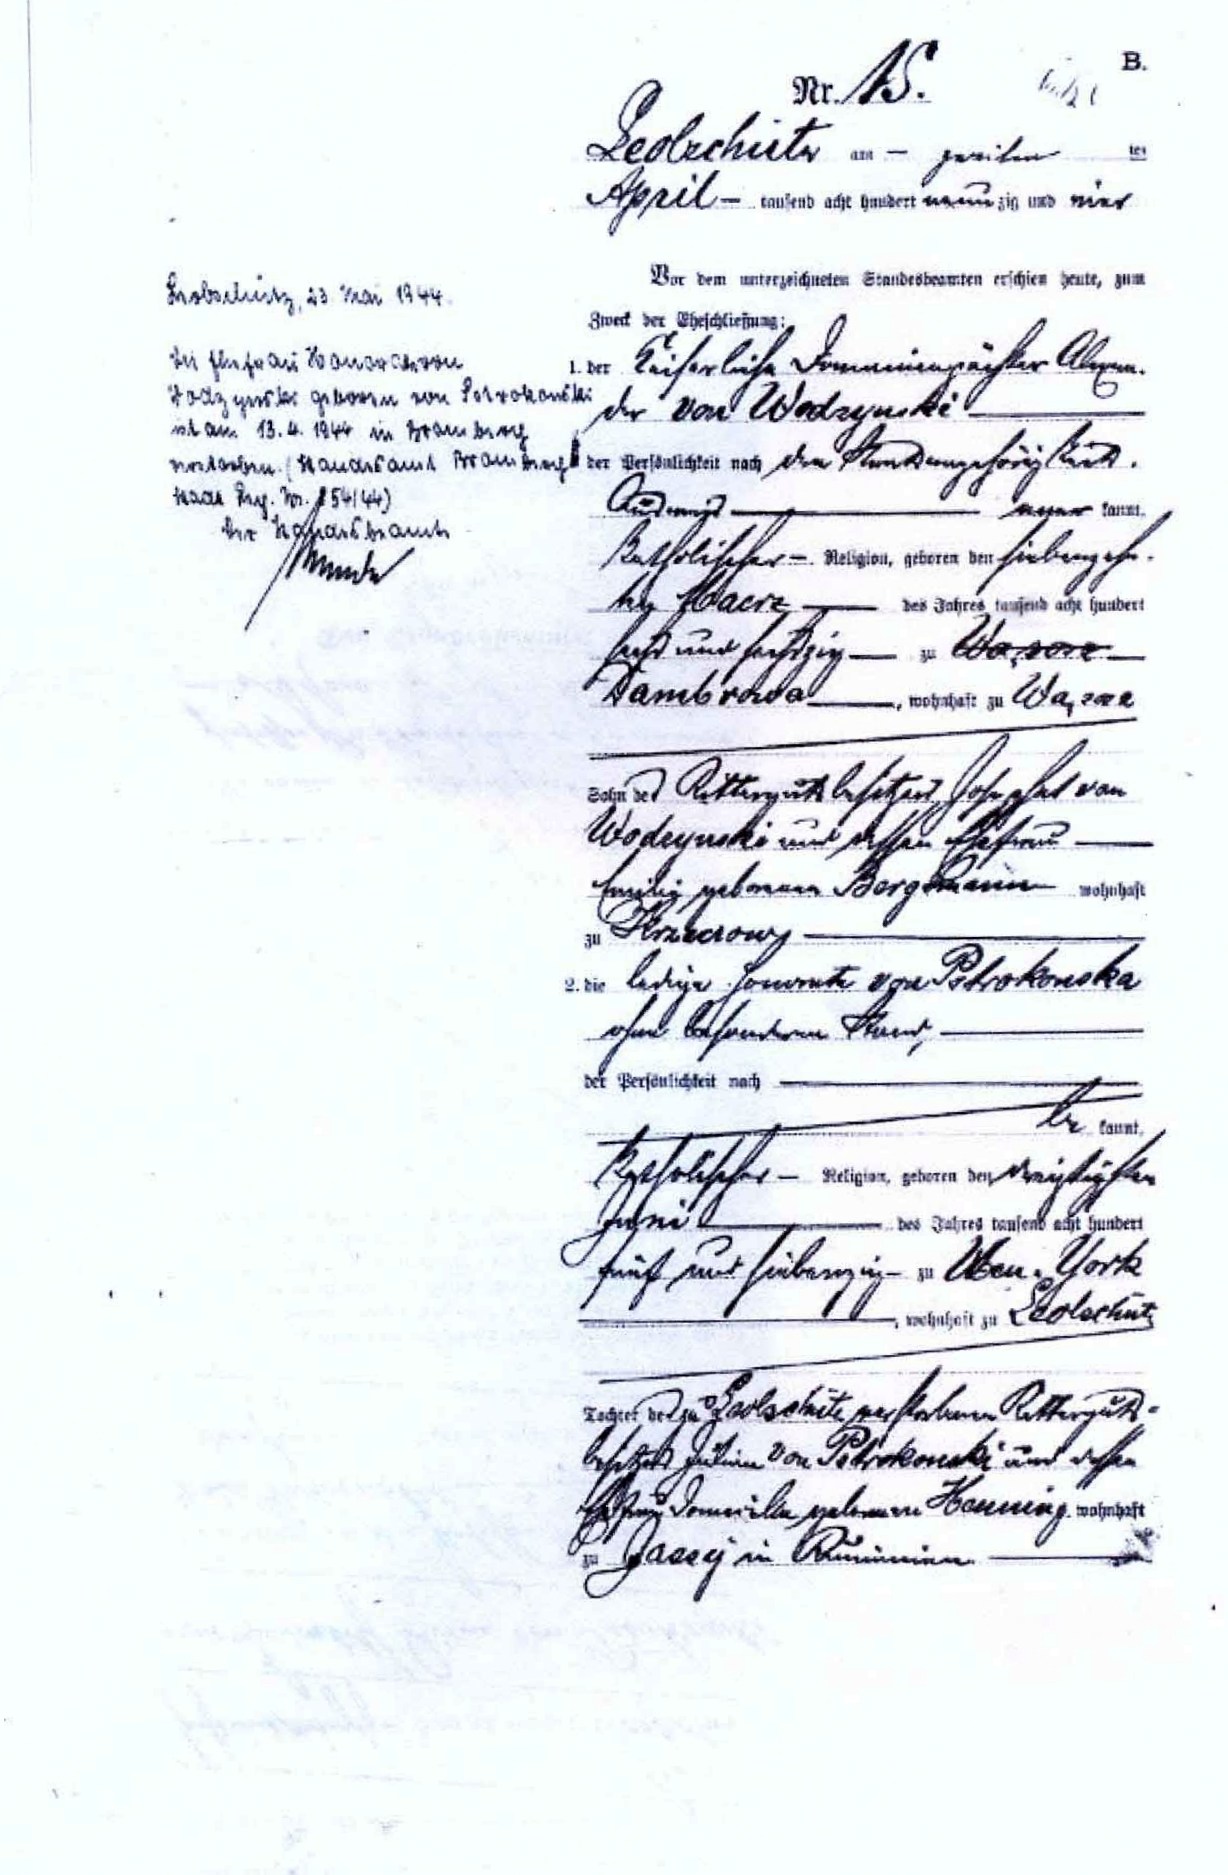 B.
Nr. 15.
Leobschütz am — zweiten des
April — tausend acht hundert neunzig und vier
Vor dem unterzeichneten Standesbeamten erschien heute, zum
Zweck der Eheschließung:
1. der Kaiserliche Domainenpächter Alexan-
der von Wodzynski
der Persönlichkeit nach den Staatsangehörigkeits-
Ausweis aner kannt,
katholischer — Religion, geboren den siebenzehn-
ten Maerz des Jahres tausend acht hundert
sechs und sechszig zu
Dambrowa, wohnhaft zu
Sohn des Rittergutsbesitzers Josaphat von
Wodzynski und dessen Ehefrau
Emilie geborenen Bergmann wohnhaft
zu
2. die ledige Honorata von Potrokonska
ohne besonderen Stand,
der Persönlichkeit nach
be kannt,
katholischer — Religion, geboren den dreißigsten
Juni des Jahres tausend acht hundert
fünf und siebenzig — zu New-York
, wohnhaft zu Leobschütz
Tochter des zu Leobschütz verstorbenen Ritterguts-
besitzers Julian von Potrokonski und dessen
Ehefrau geborenen Henning wohnhaft
zu Jassy in Rumänien
Leobschütz, 23. Mai 1944.
Die Ehefrau Honorata von
Wodzynski geboren von Potrokonski
ist am 13.4.1944 in Bromberg
verstorben. (Standesamt Bromberg
Reg. Nr. 854/44)
Der Standesbeamte